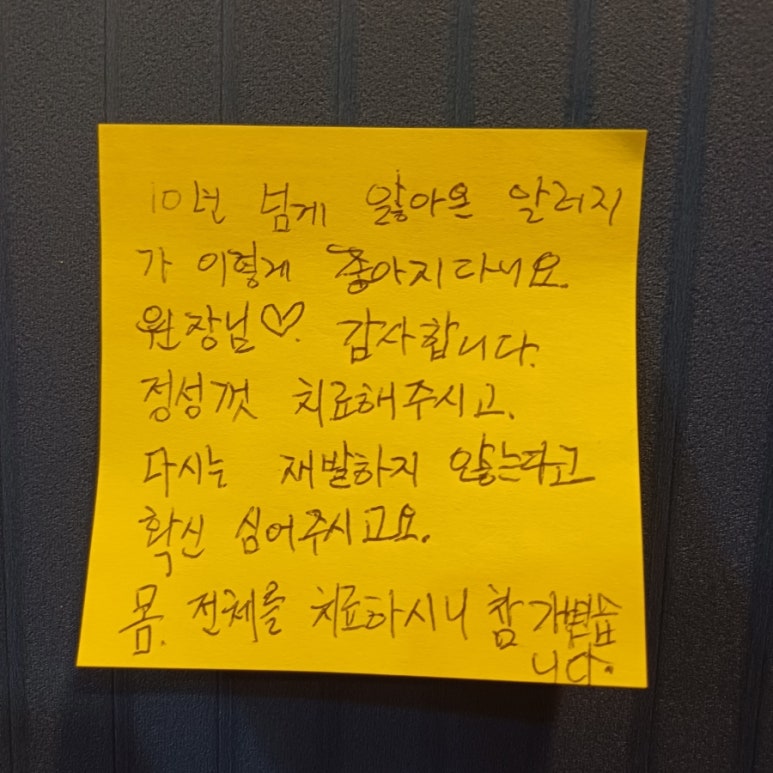 10년 넘게 앓아온 알러지
가 이렇게 좋아지다니요.
원장님♡. 감사합니다.
정성껏 치료해주시고.
다시는 재발하지 않는다고
확신 심어주시고요.
몸. 전체를 치료하시니 참 가볍습
니다.